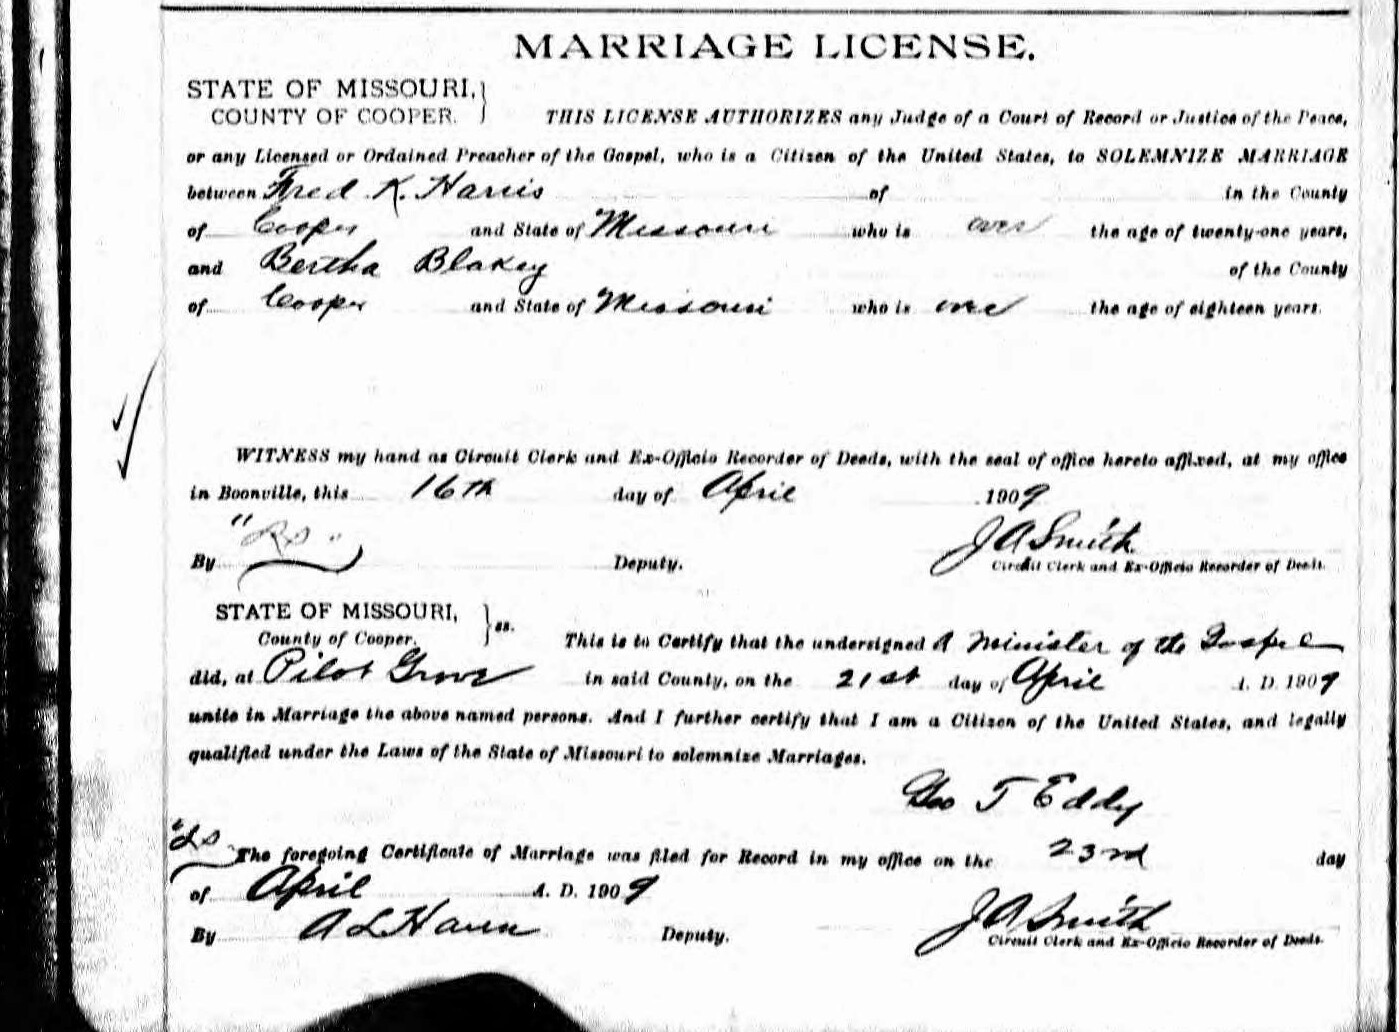 MARRIAGE LICENSE.
STATE OF MISSOURI,
COUNTY OF COOPER.
THIS LICENSE AUTHORIZES any Judge of a Court of Record or Justice of the Peace,
or any Licensed or Ordained Preacher of the Gospel, who is a Citizen of the United States, to SOLEMNIZE MARRIAGE
between Fred K. Harris of in the County
of Cooper and State of Missouri who is over the age of twenty-one years,
and Bertha Blakey of the County
of Cooper and State of Missouri who is over the age of eighteen years.
WITNESS my hand as Circuit Clerk and Ex-Officio Recorder of Deeds, with the seal of office hereto affixed, at my office
in Boonville, this 16th day of April 1909
J A Smith
By Deputy. Circuit Clerk and Ex-Officio Recorder of Deeds.
STATE OF MISSOURI,
County of Cooper. ss.
This is to Certify that the undersigned A Minister of the Gospel
did, at Pilot Grove in said County, on the 21st day of April A. D. 1909
unite in Marriage the above named persons. And I further certify that I am a Citizen of the United States, and legally
qualified under the Laws of the State of Missouri to solemnize Marriages.
Geo T Eddy
The foregoing Certificate of Marriage was filed for Record in my office on the 23rd day
of April A. D. 1909
J A Smith
By A L Deputy. Circuit Clerk and Ex-Officio Recorder of Deeds.